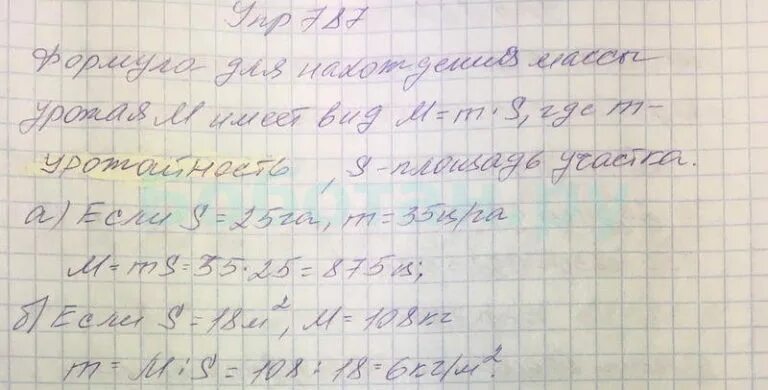 Упр 787
Формула для нахождения массы
урожая M имеет вид M=m·S, где m-
урожайность, S-площадь участка.
а) Если S=25га, m=35ц/га
M=mS=35·25=875ц;
б) Если S=18м², M=108кг
m=M:S=108:18=6кг/м².